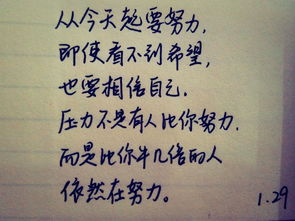 从今天起要努力,
即使看不到希望,
也要相信自己.
压力不是有人比你努力.
而是比你牛几倍的人
依然在努力。
1.29